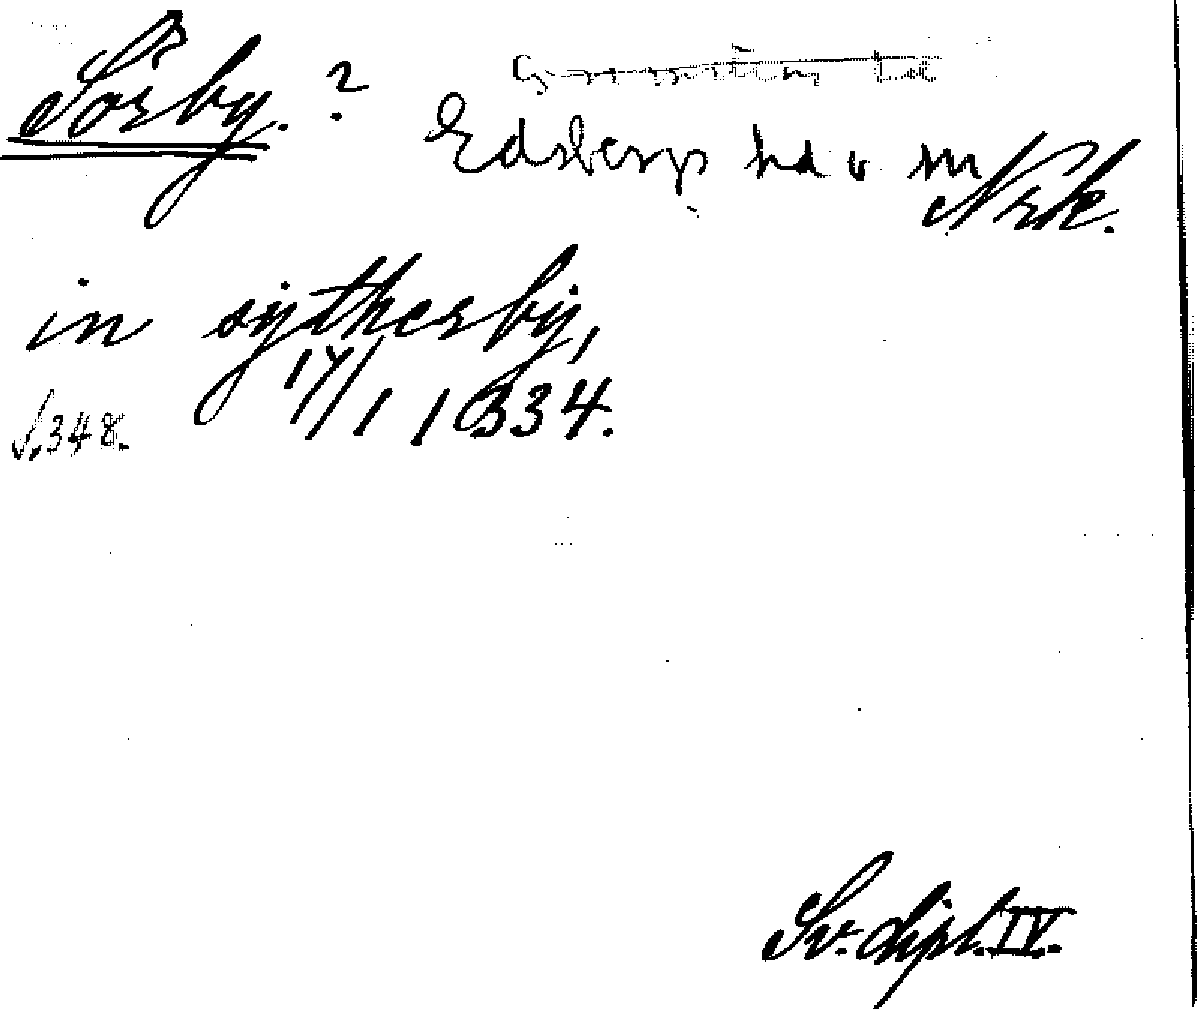 Sörby. ?
Edsbergs hd o sn
Nrk.
in sytherby,
17/1 1334.
S. 348.
Sv. dipl. IV.